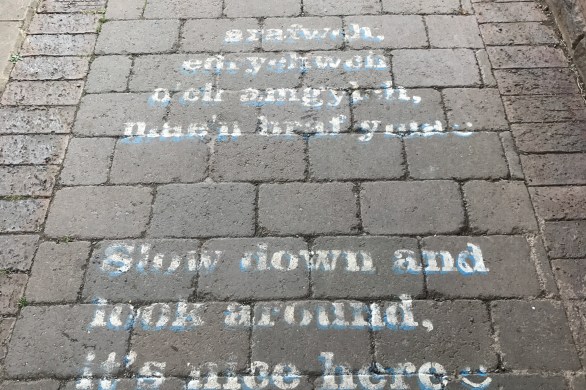 arafwch,
edrychwch
o'ch amgylch,
mae'n braf yma
Slow down and
look around,
it's nice here